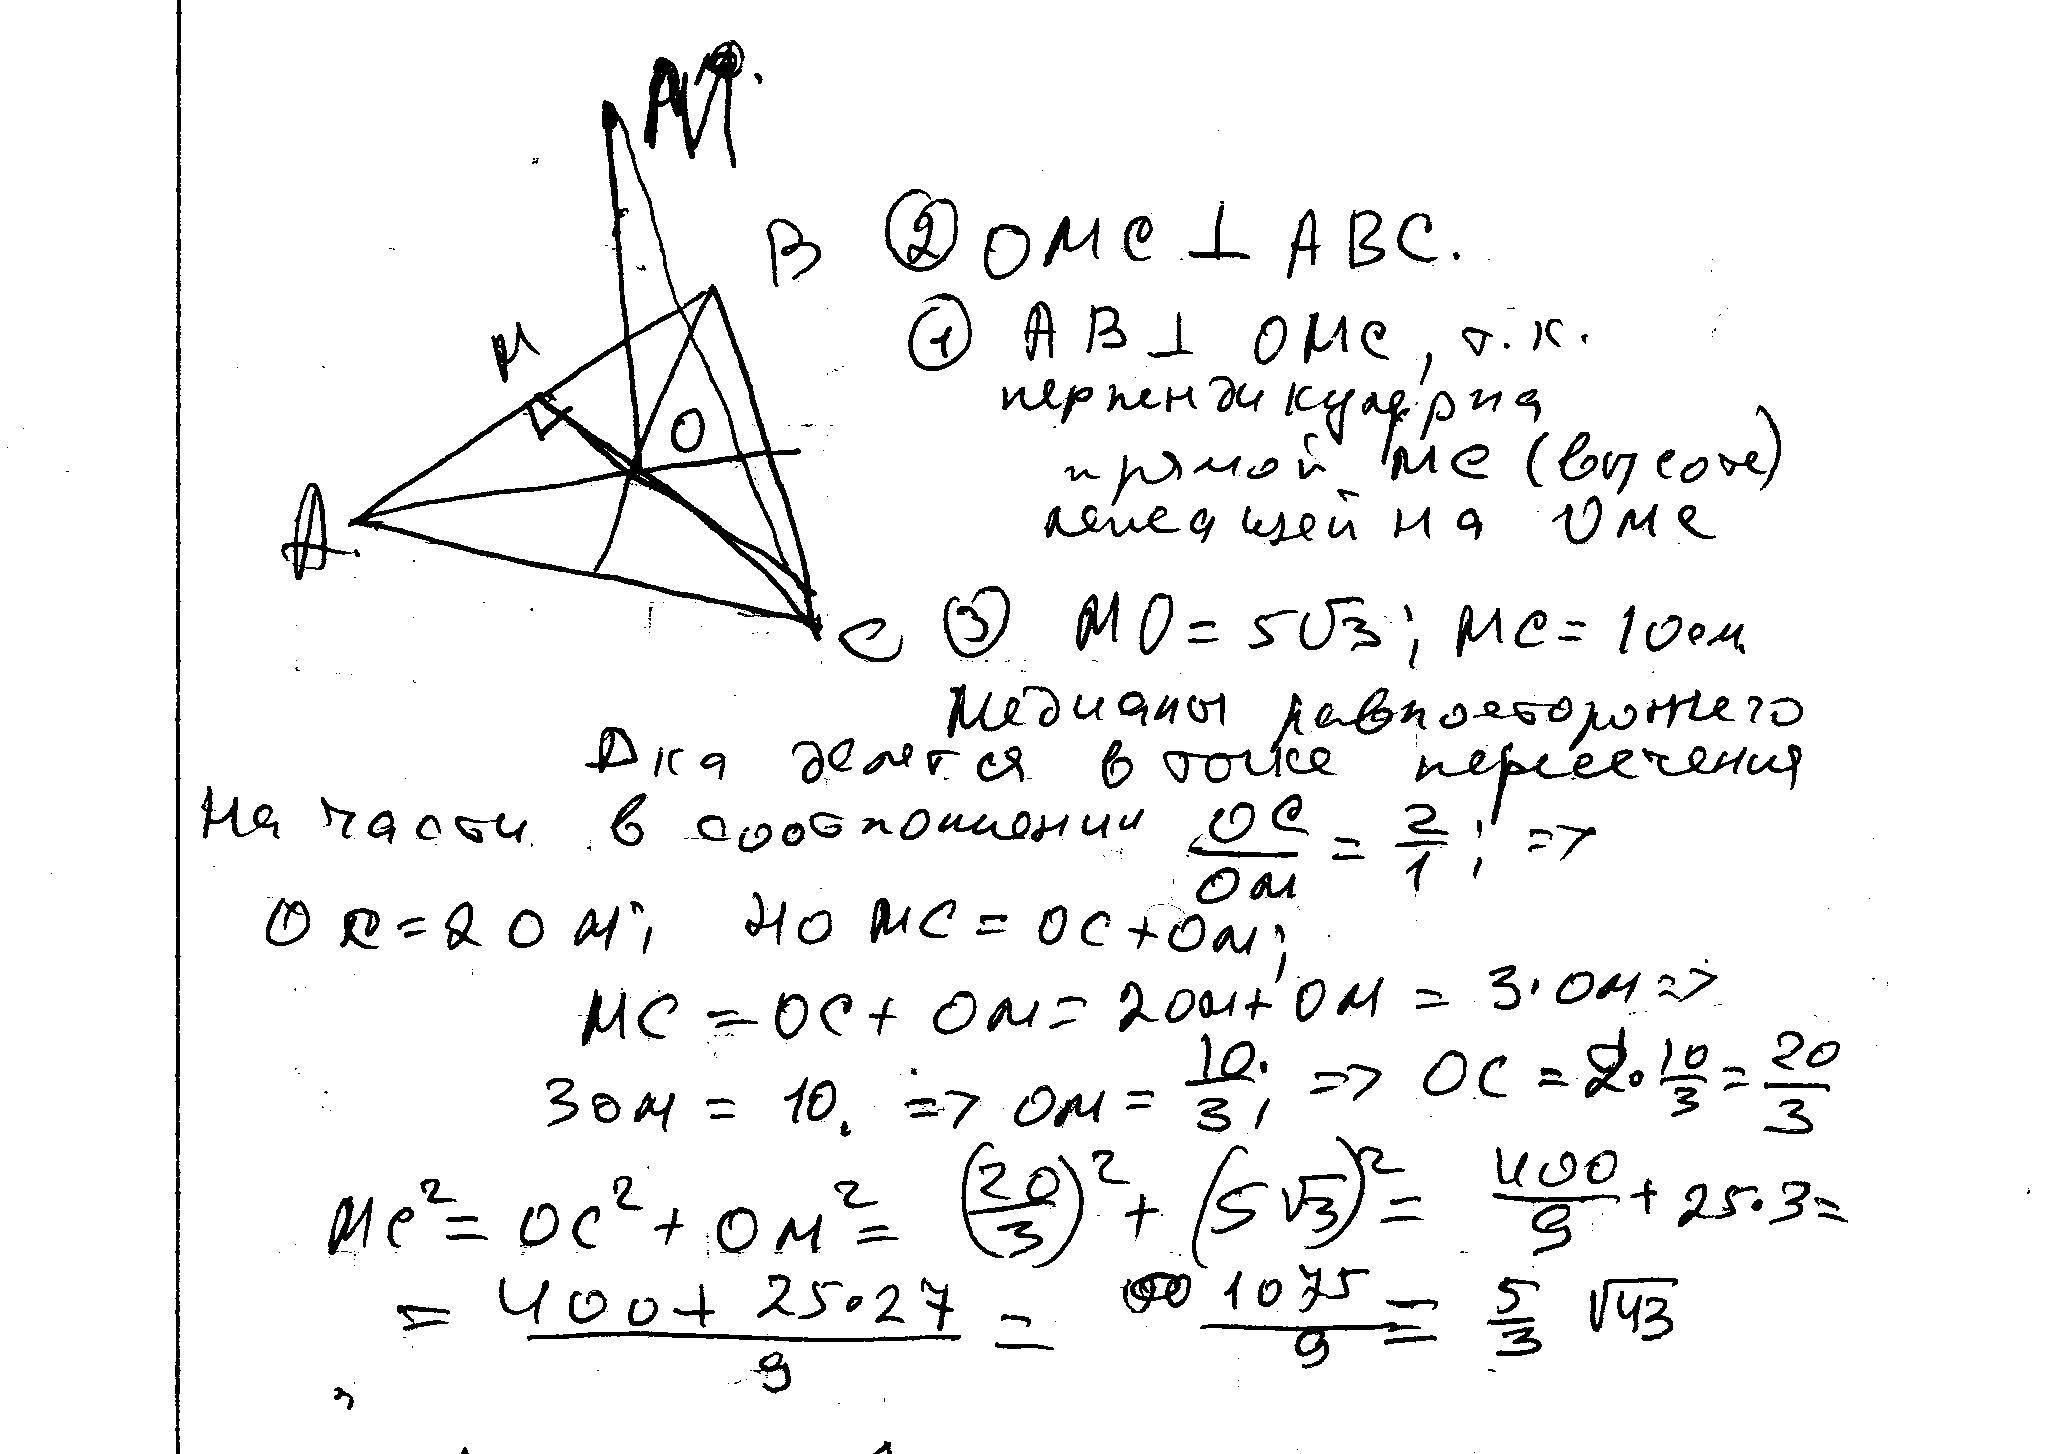 М.
B
② OMC ⊥ ABC.
① AB ⊥ OMC, т.к.
перпендикулярна
прямой MC (высоте)
лежащей на OMC
M
O
A.
C
③ MO = 5√3; MC = 10 см
Медианы равностороннего
Δка делятся в точке пересечения
на части в соотношении OC/OM = 2/1; =>
OC = 2OM; но MC = OC + OM;
MC = OC + OM = 2OM + OM = 3·OM =>
3OM = 10. => OM = 10/3; => OC = 2·10/3 = 20/3
MC² = OC² + OM² = (20/3)² + (5√3)² = 400/9 + 25·3 =
= 400 + 25·27/9 = 1075/9 = 5/3 √43